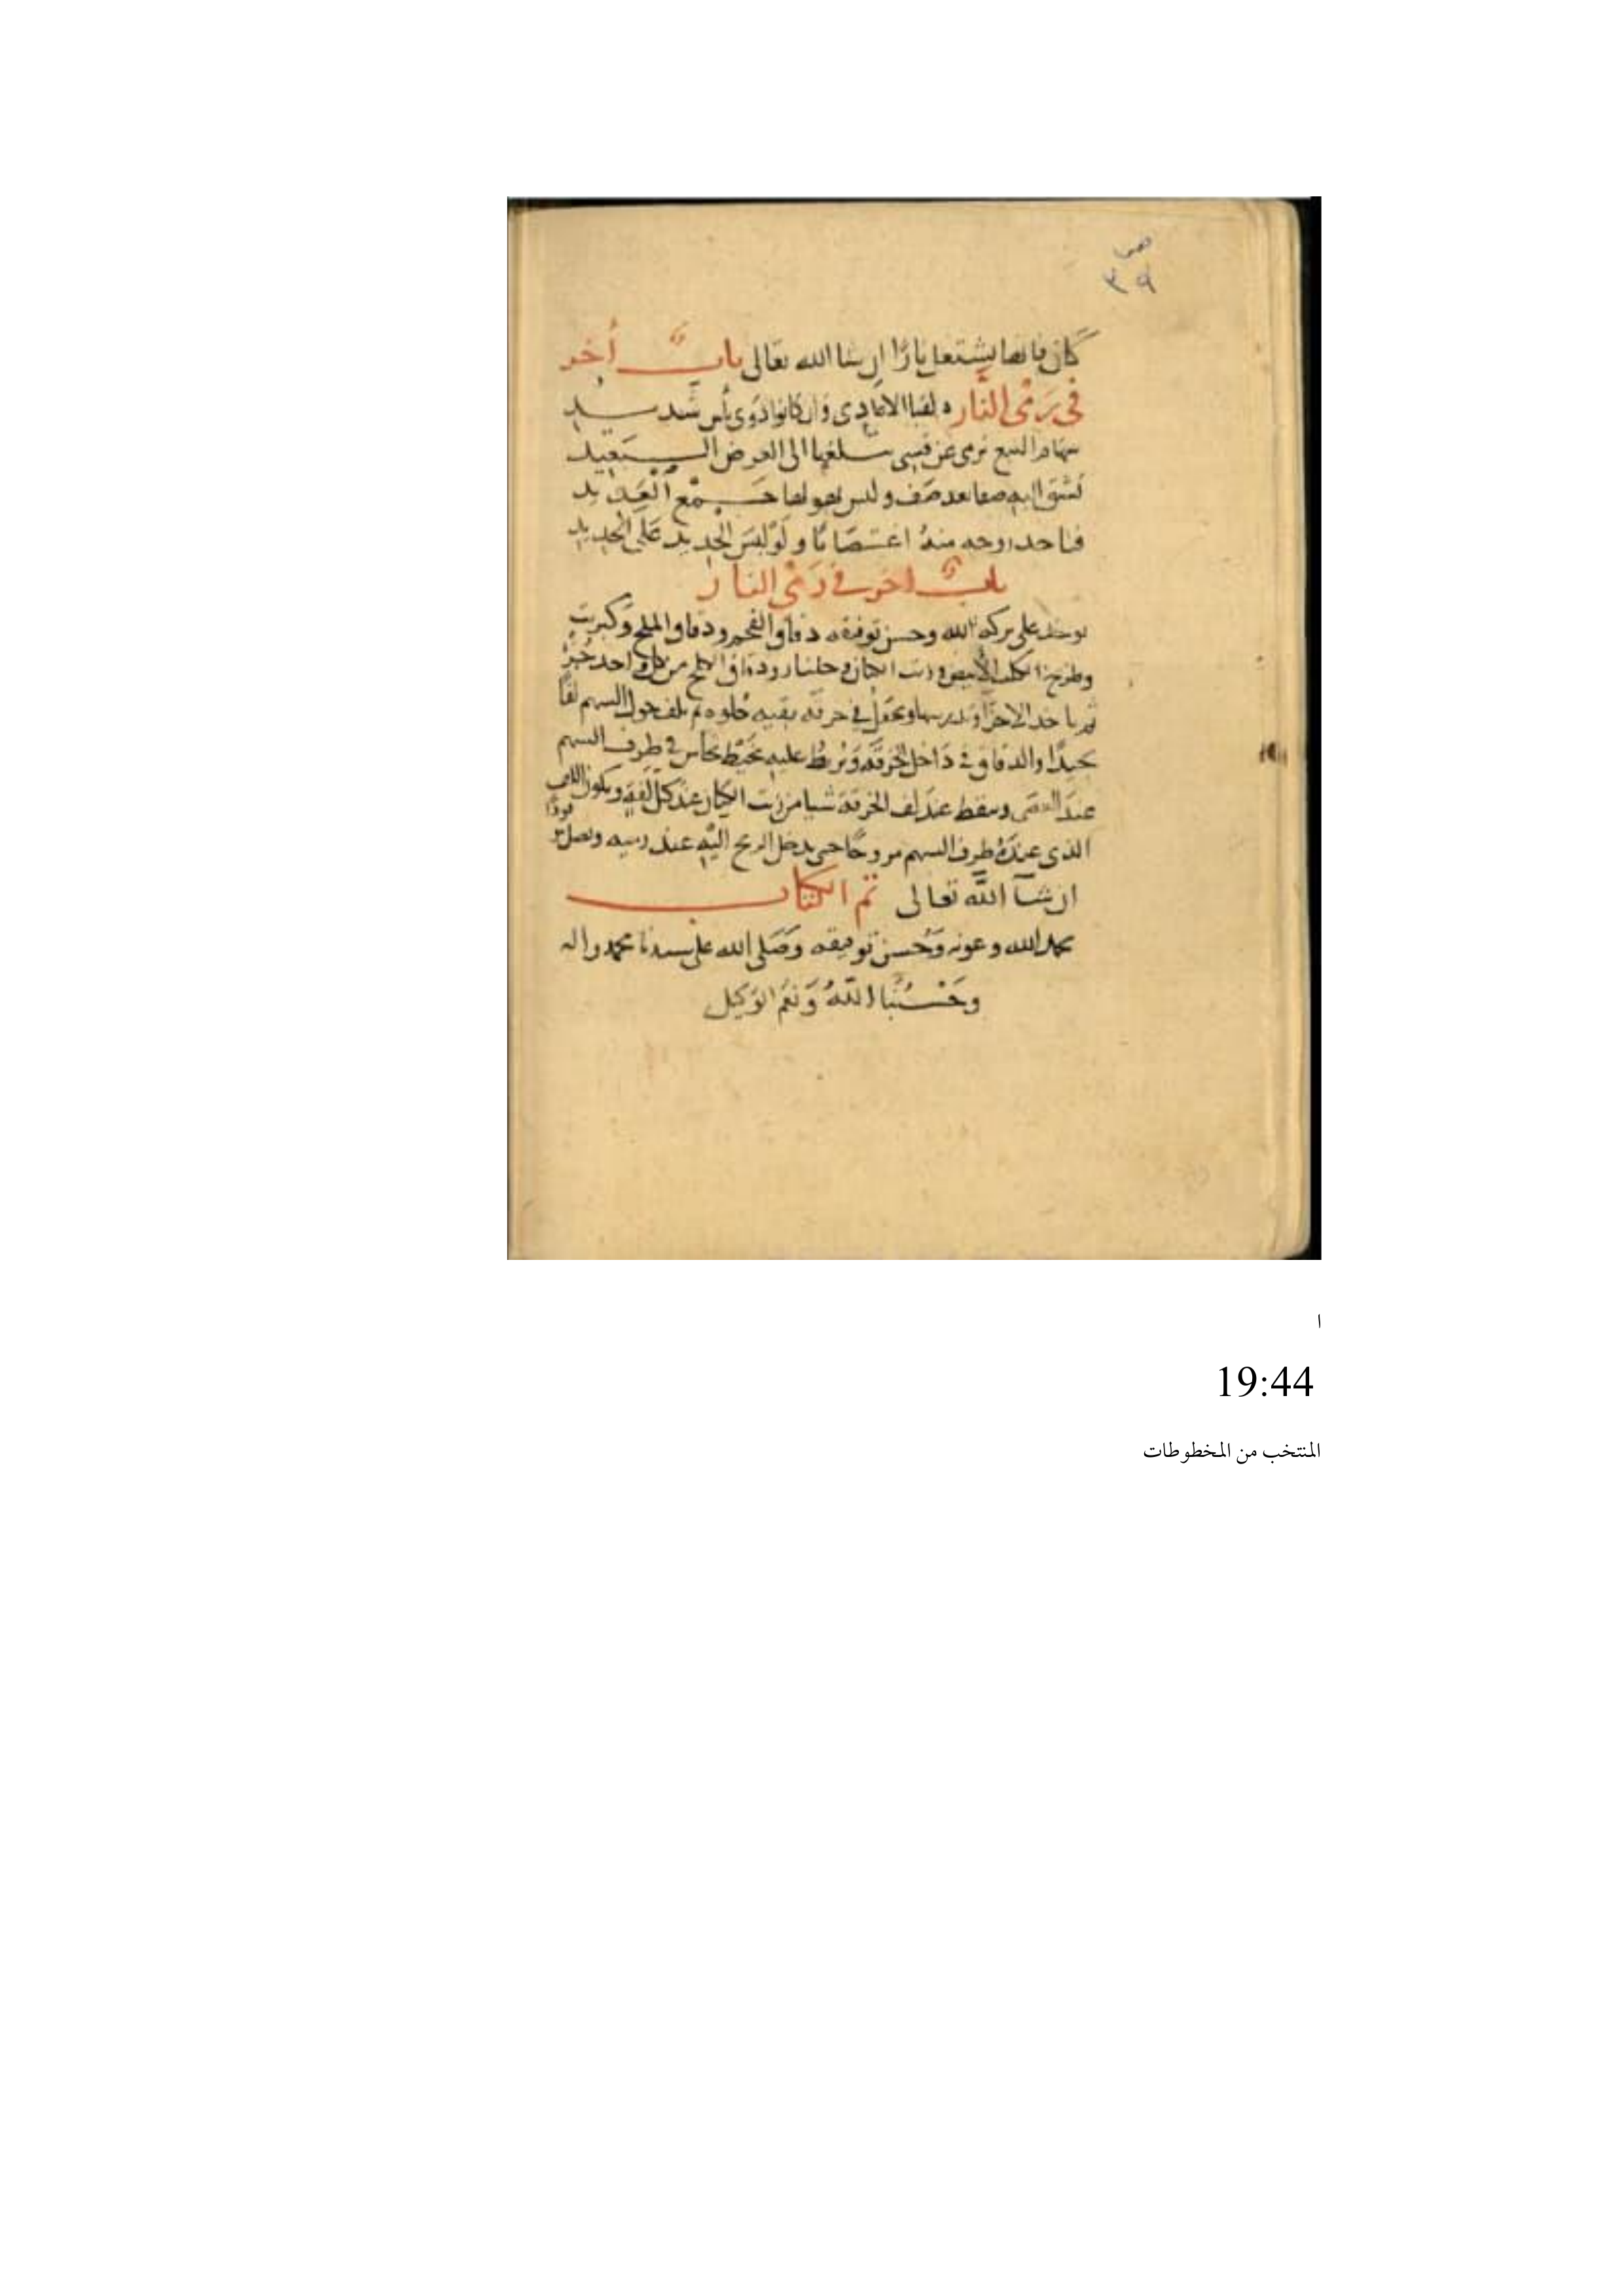 ص
٣٩
كان فانها يشتعل نارًا ان شا الله تعالى باب أخر
في رَمْى النار لقينا الاعادى وان كانوا ذوى بأس شديد
سهام النبع ترمى عن قسى تبلغها الى الغرض البعيد
تشق اليه صفا بعد صف وليس لهولها جمع العديد
فتاخد روحه منهُ اغتصابًا ولو لبسَ الحديد على الحديد
باب اخر في رَمْى النار
يوخد على بركه الله وحسن توفيقه دقاق الفحم ودقاق الملح وكبريت
الكلب الأبيض وزيت الكتان ودقاق من كل واحد جُزءٌ
ثم ياخد الاجزآ ويجعل في خرقه نقيه ثم يلف حول السهم لفًا
جيدًا والدقاق في داخل الخرقه ويُربطُ عليه بخيط نحاس في طرف السهم
عند ويسقط عند لف الخرقة شيا من زيت الكتان عند كل لفة ويكون اللف
الذى عند طرف السهم حتى يدخل الريح اليه عند رميه ويصل
ان شآ الله تعالى تم الكتاب
بحمد الله وعونه وحُسن توفيقه وَصَلى الله على سيدنا محمد واله
وحَسْبُنا اللهُ وَنعْمَ الوَكيل
ا
19:44
المنتخب من المخطوطات